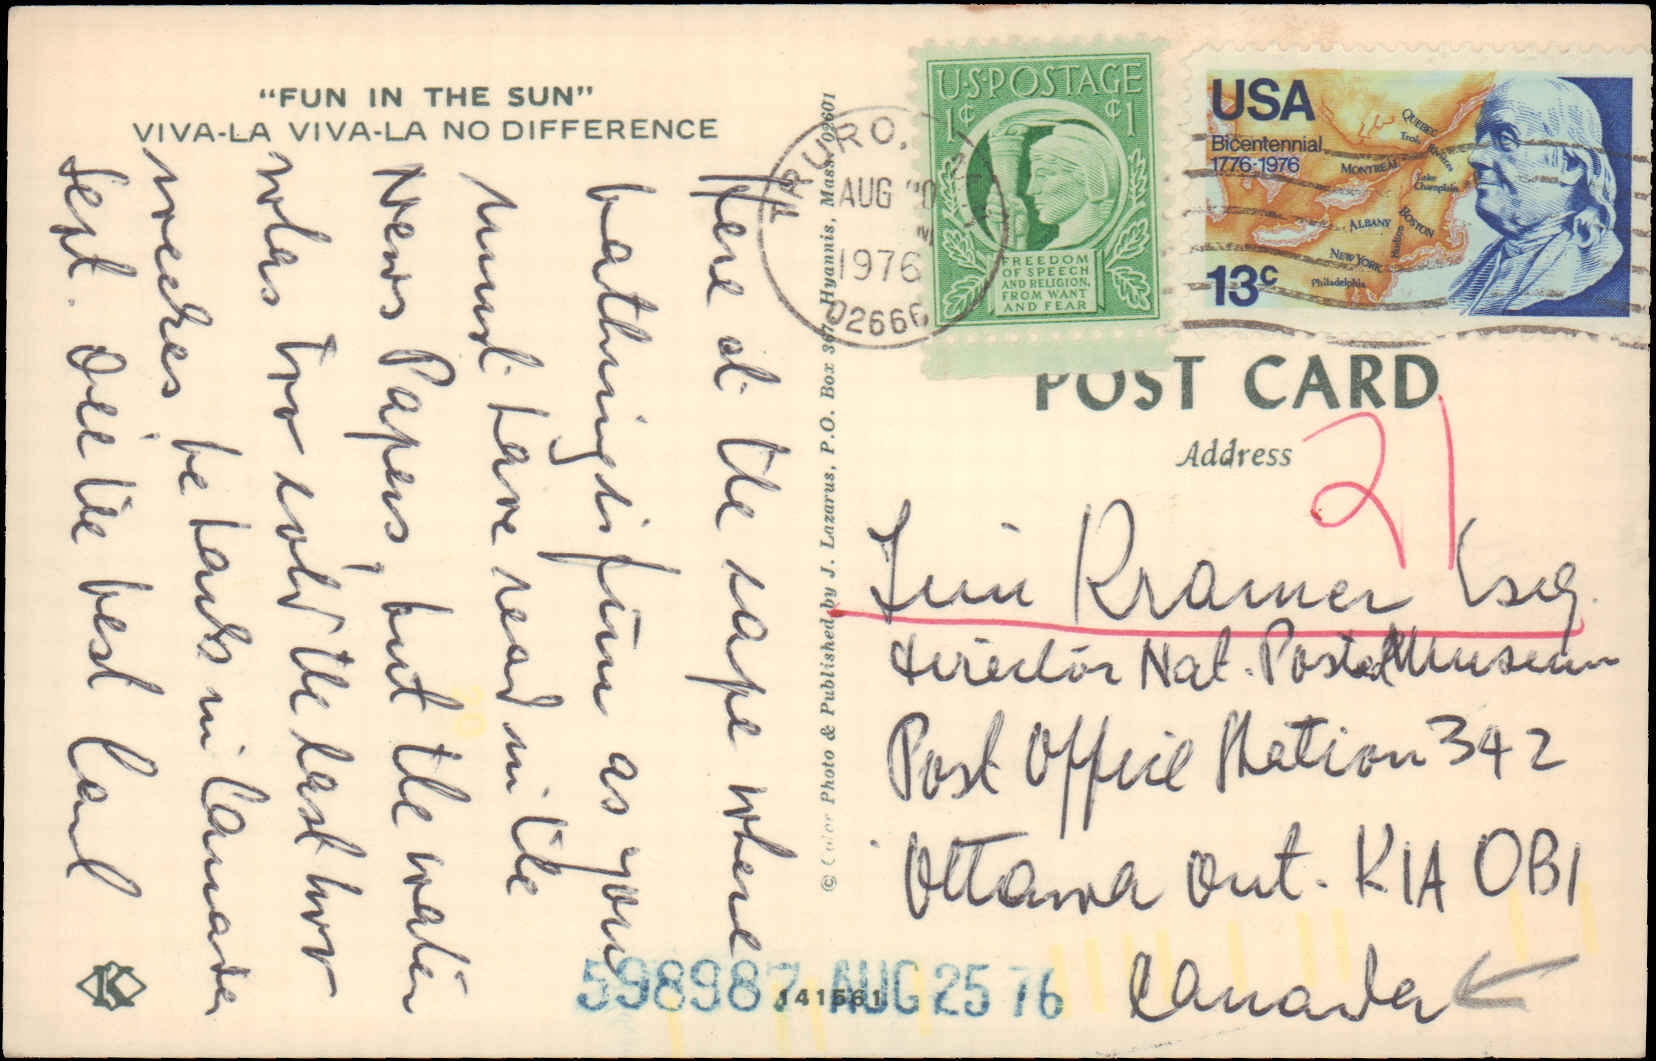 "FUN IN THE SUN"
VIVA-LA VIVA-LA NO DIFFERENCE
Here at the cape where
bathing is fun as you
must have read in the
News Papers, but the water
was too cold the last two
weekes, be back in Canada
Sept. All the best Carl
© Color Photo & Published by J. Lazarus, P.O. Box Hyannis, Mass. 02601
TRURO,
AUG 20
1976
02666
U·S·POSTAGE
1¢ ¢1
FREEDOM
OF SPEECH
AND RELIGION,
FROM WANT
AND FEAR
USA
Bicentennial
1776-1976
QUEBEC
Trois Rivières
MONTREAL
Lake Champlain
ALBANY
BOSTON
Hudson
NEW YORK
Philadelphia
13c
POST CARD
Address
21
Jim Kramer Esq.
Director Nat. Postal Museum
Post Office Station 342
Ottawa Ont. K1A 0B1
Canada
598987 AUG 25 76
141561
K